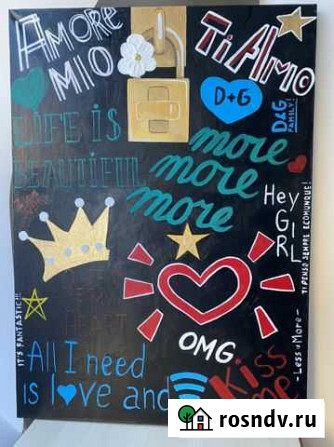 AMORE
MIO
Ti AMO
D+G
D&G
FAMILY!
LIFE iS
BEAUTIFUL
more
more
more
Hey
GIRL
TI PENSO SEMPRE E COMUNQUE!
IT'S FANTASTIC!!!
OMG
-Less is More-
All I need
is love and
Kiss
me
rosndv.ru